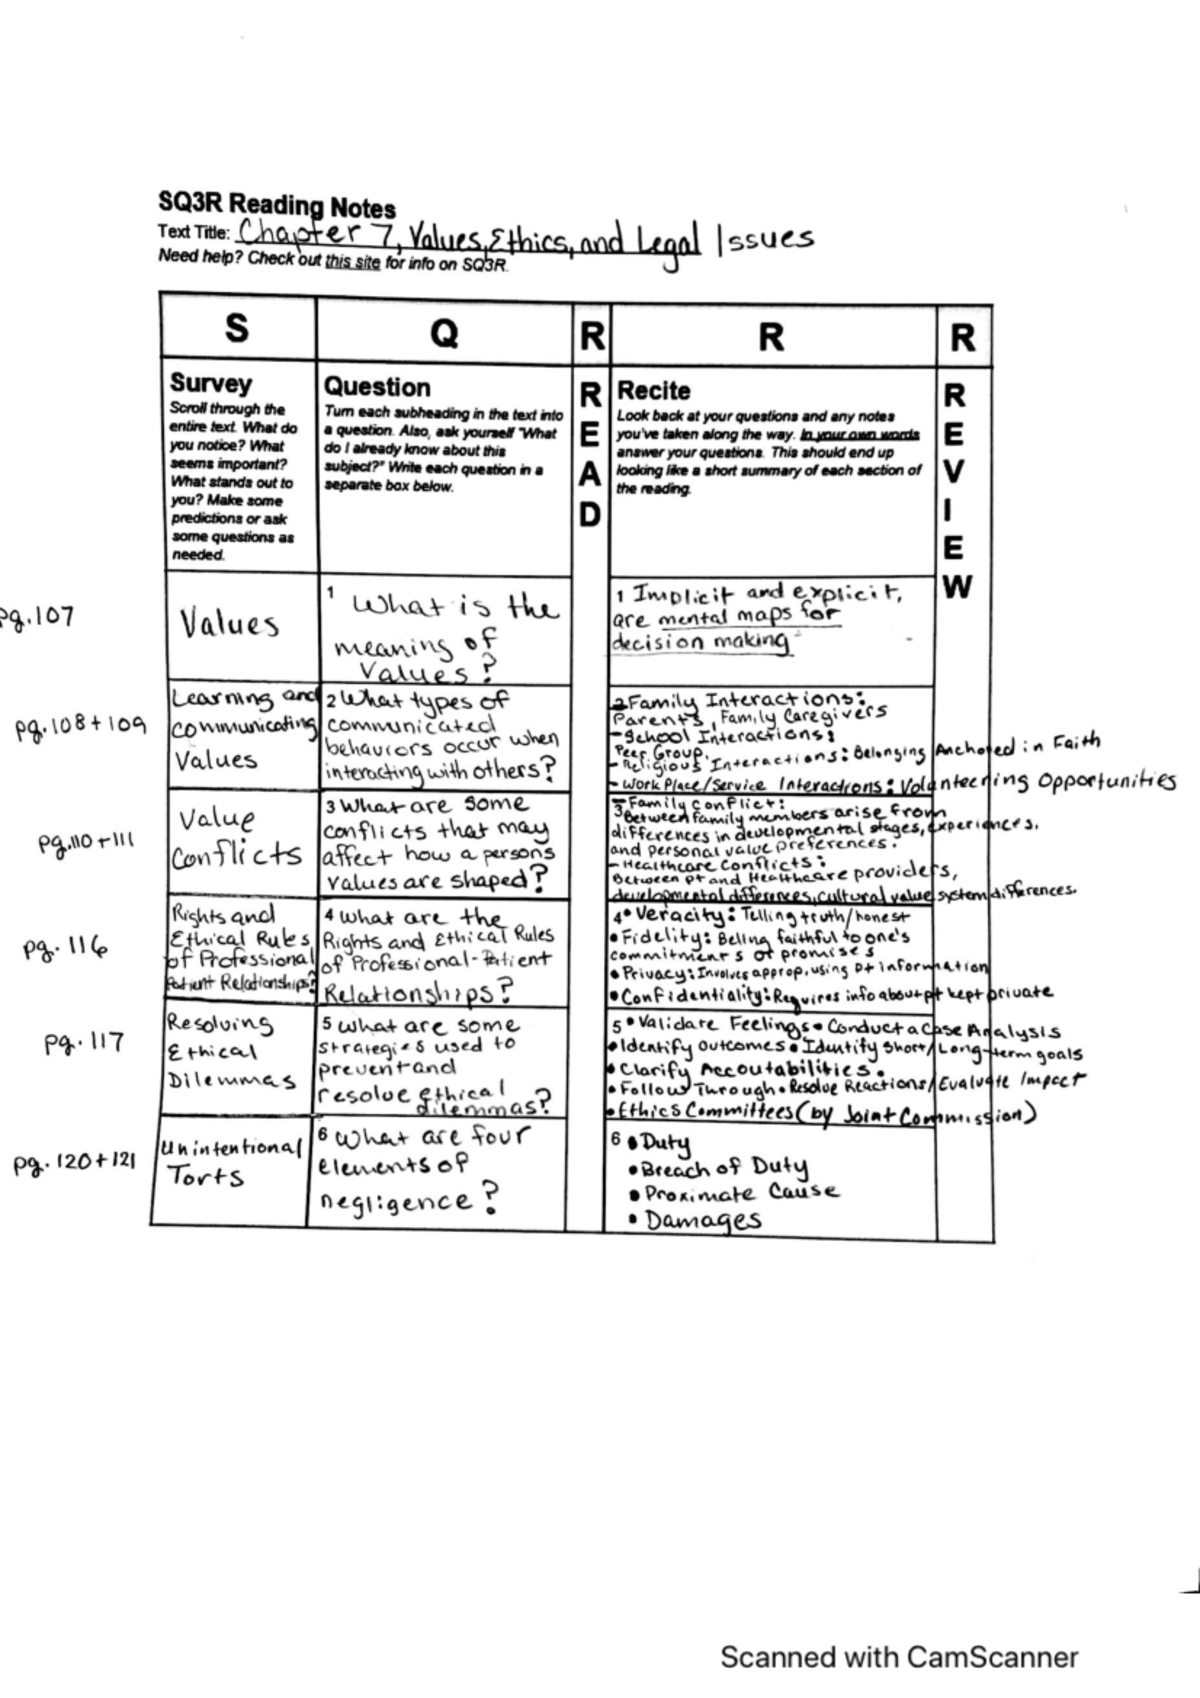 SQ3R Reading Notes
Text Title: Chapter 7, Values, Ethics, and Legal Issues
Need help? Check out this site for info on SQ3R.
S
Q
R
R
R
Survey
Scroll through the
entire text. What do
you notice? What
seems important?
What stands out to
you? Make some
predictions or ask
some questions as
needed.
Question
Turn each subheading in the text into
a question. Also, ask yourself "What
do I already know about this
subject?" Write each question in a
separate box below.
R
E
A
D
Recite
Look back at your questions and any notes
you've taken along the way. In your own words
answer your questions. This should end up
looking like a short summary of each section of
the reading.
R
E
V
I
E
W
pg.107
Values
1 What is the
meaning of
Values?
1 Implicit and explicit,
are mental maps for
decision making
pg.108+109
Learning and
Communicating
Values
2 What types of
communicated
behaviors occur when
interacting with others?
2 Family Interactions:
Parents, Family Caregivers
-School Interactions:
Peer Group.
- Religious Interactions: Belonging Anchored in Faith
- Work Place/Service Interactions: Volunteering Opportunities
pg.110+111
Value
Conflicts
3 What are some
conflicts that may
affect how a persons
values are shaped?
3 -Family conflict:
Between family members arise from
differences in developmental stages, experiences,
and personal value preferences.
-Healthcare Conflicts:
Between pt and Healthcare providers,
developmental differences, cultural value system differences.
pg. 116
Rights and
Ethical Rules
of Professional
Patient Relationships?
4 What are the
Rights and Ethical Rules
of Professional-Patient
Relationships?
4• Veracity: Telling truth/honest
• Fidelity: Being faithful to one's
commitments or promises
• Privacy: Involves approp. using pt information
• Confidentiality: Requires info about pt kept private
pg. 117
Resolving
Ethical
Dilemmas
5 What are some
strategies used to
prevent and
resolve ethical
dilemmas?
5 • Validate Feelings • Conduct a Case Analysis
• Identify Outcomes • Identify Short/Long-term goals
• Clarify Accoutabilities.
• Follow Through • Resolve Reactions/Evaluate Impact
• Ethics Committees (by Joint Commission)
pg. 120+121
Unintentional
Torts
6 What are four
elements of
negligence?
6 • Duty
• Breach of Duty
• Proximate Cause
• Damages
Scanned with CamScanner